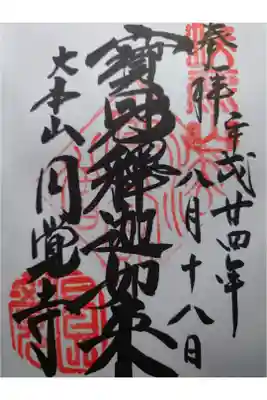 奉拝 平成廿四年
八月十八日
寶冠釋迦如来
大本山 円覚寺